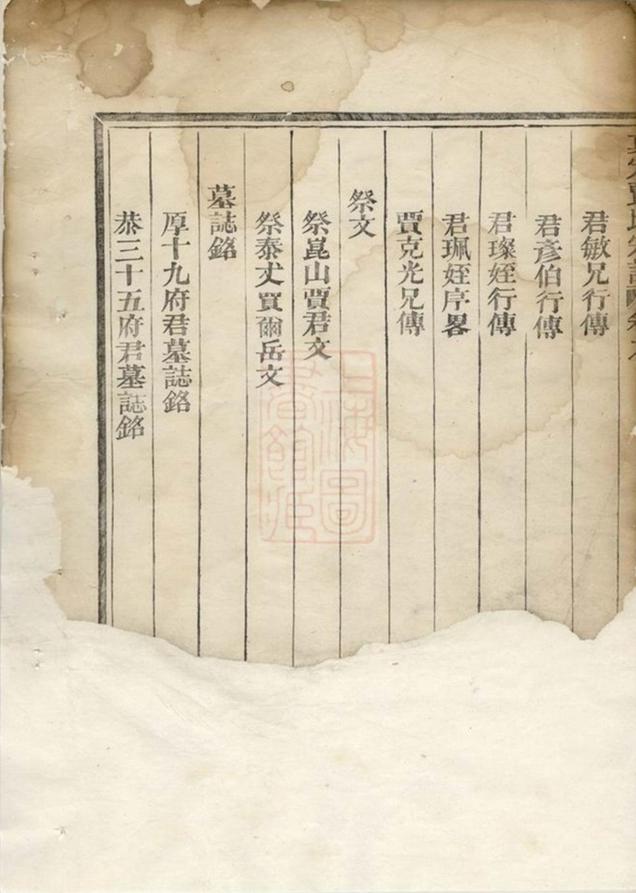 君敏兄行傳
君彥伯行傳
君璨姪行傳
君珮姪序畧
賈克光兄傳
祭文
祭崑山賈君文
祭泰丈賈爾岳文
墓誌銘
厚十九府君墓誌銘
恭三十五府君墓誌銘